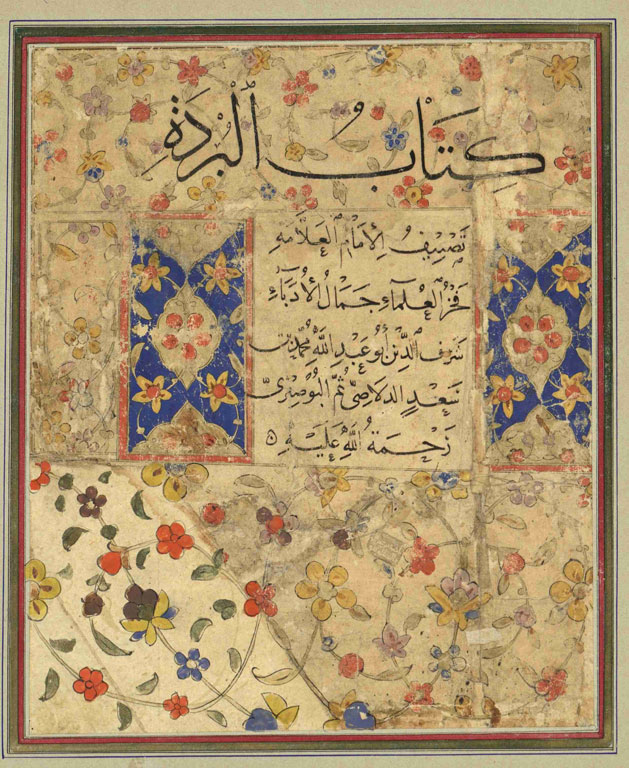 كِتَابُ الْبُرْدَةِ
تَصْنِيفُ الْإِمَامِ الْعَلَّامَةِ
فَخْرِ الْعُلَمَاءِ جَمَالِ الْأُدَبَاءِ
شَرَفِ الدِّينِ أَبُو عَبْدِ اللَّهِ مُحَمَّدِ بْنِ
سَعِيدٍ الدلاصِيِّ ثُمَّ الْبُوصِيرِيِّ
رَحْمَةُ اللَّهِ عَلَيْهِ